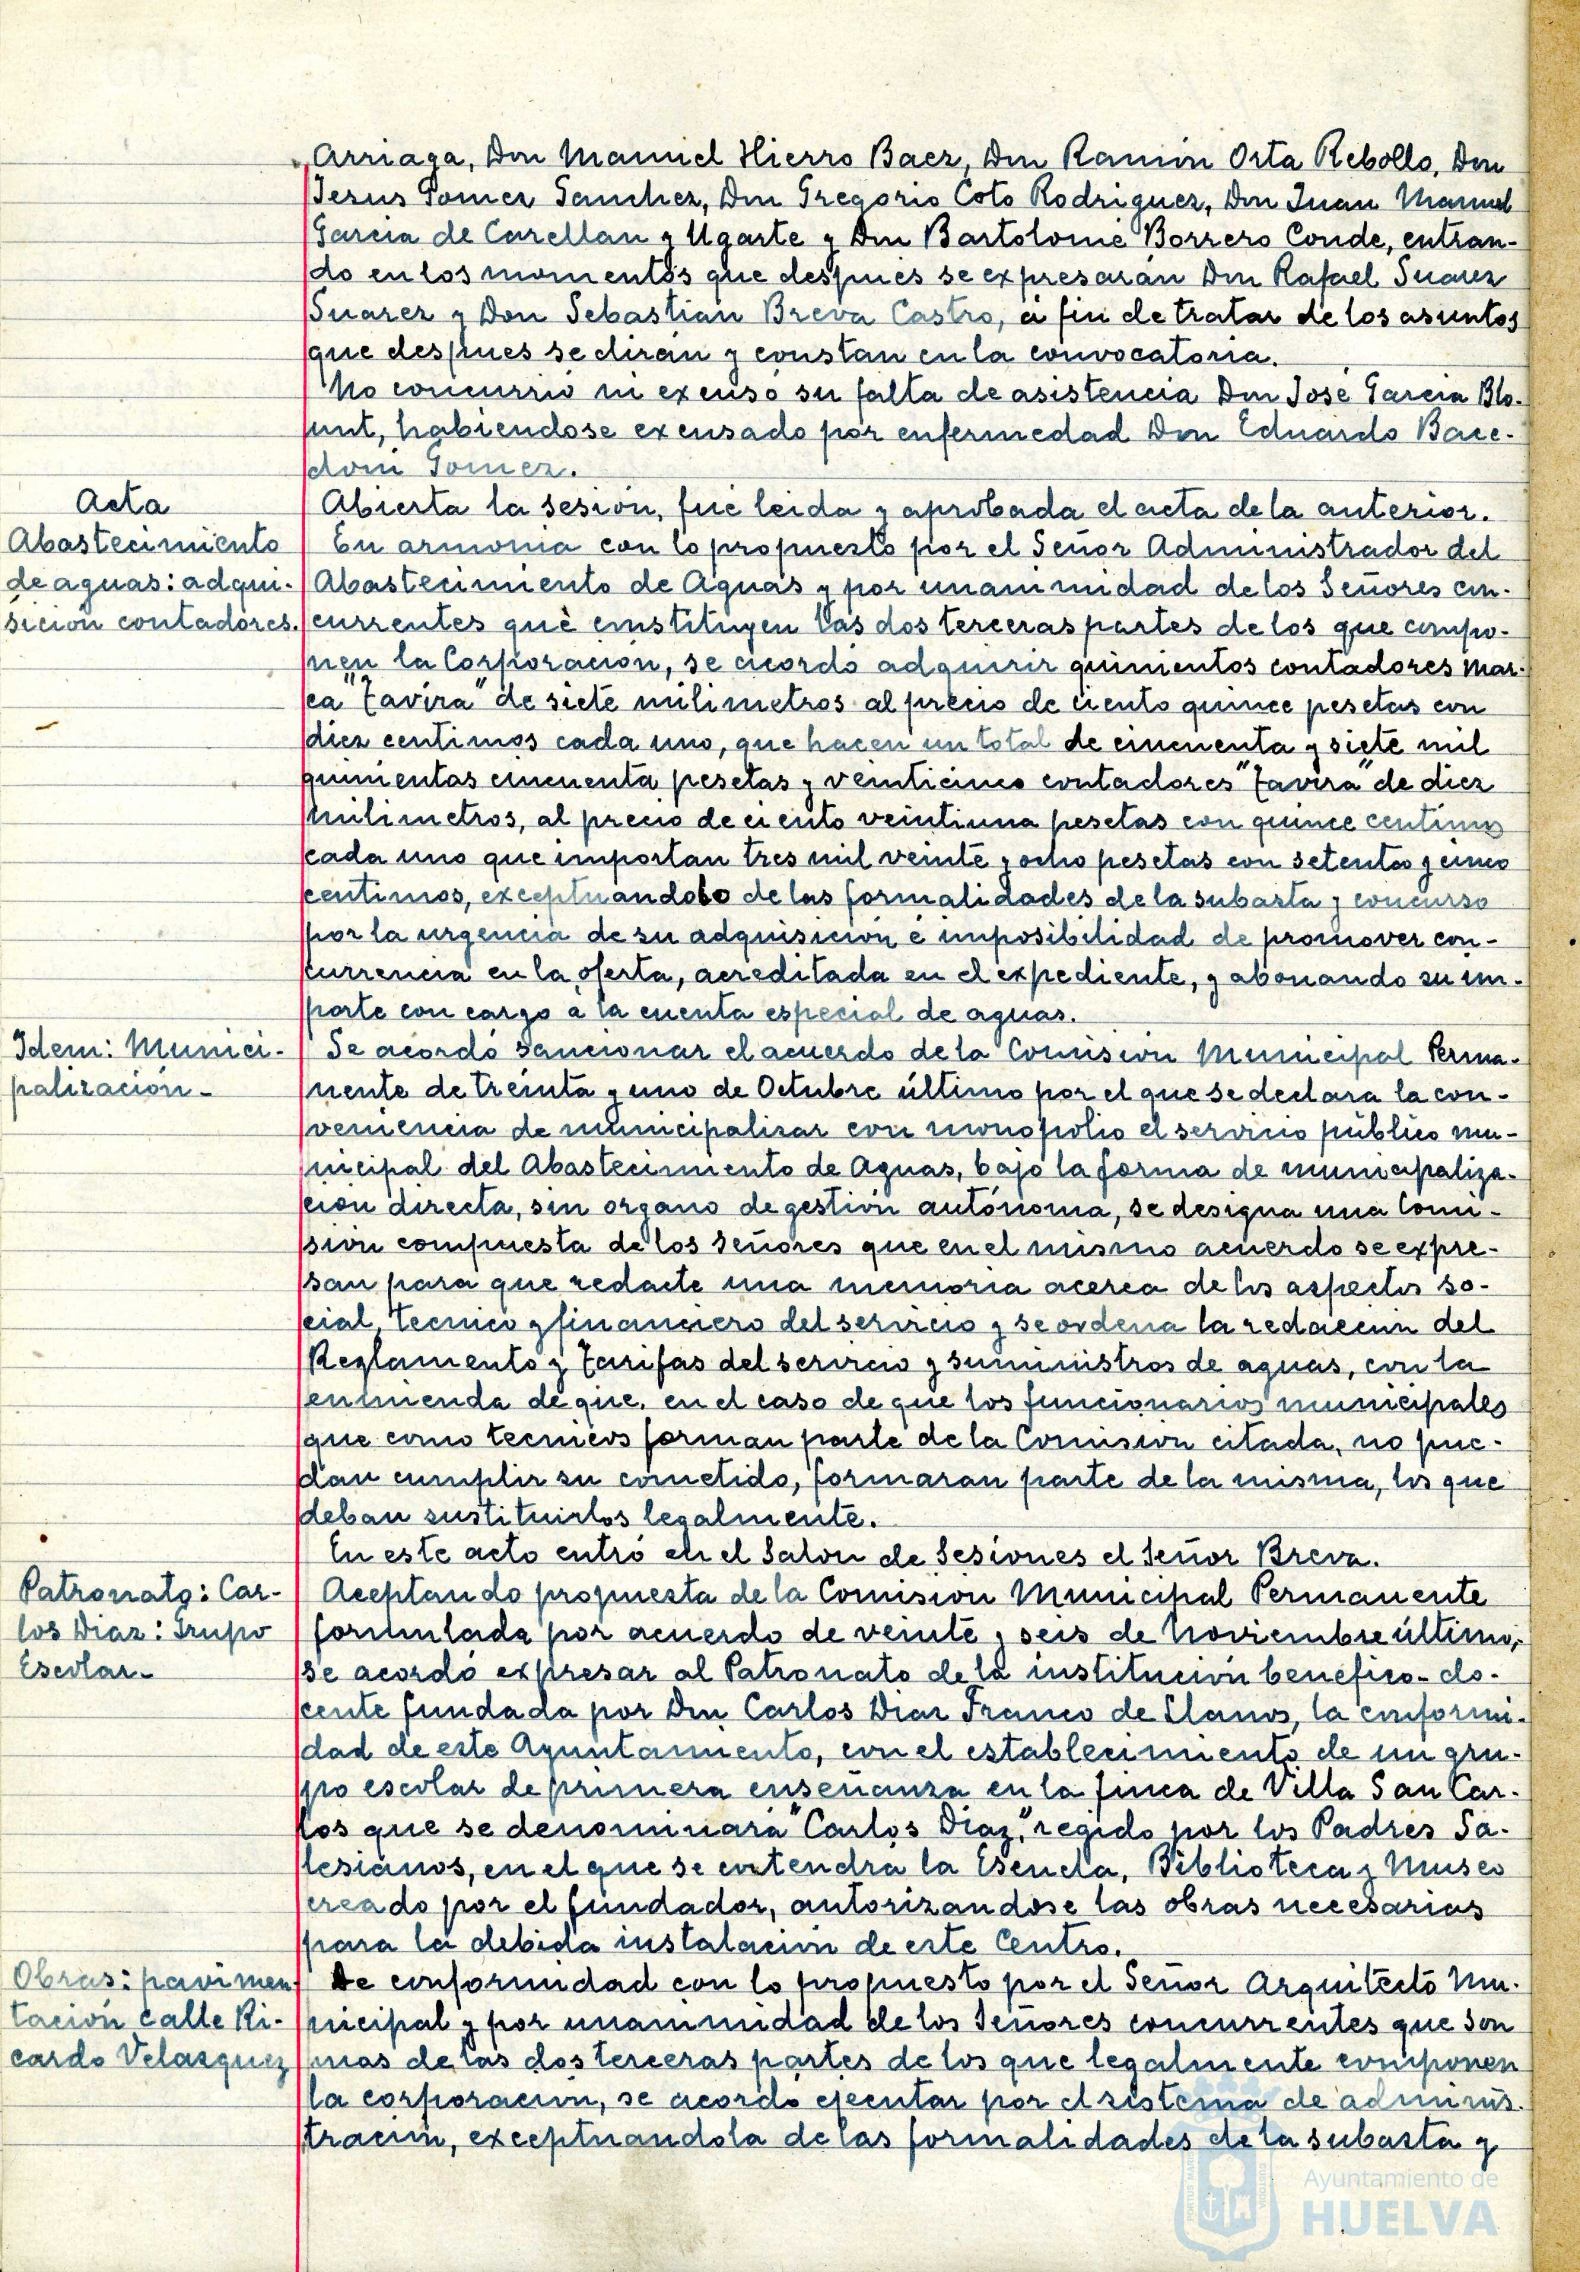 Arriaga, Don Manuel Hierro Baez, Don Ramón Orta Rebollo, Don
Jesus Gomez Sanchez, Don Gregorio Coto Rodriguez, Don Juan Manuel
Garcia de Carellan y Ugarte y Don Bartolomé Borrero Conde, entran-
do en los momentos que después se expresarán Don Rafael Suarez
Suarez y Don Sebastián Breva Castro, a fin de tratar de los asuntos
que después se dirán y constan en la convocatoria.
No concurrió ni excusó su falta de asistencia Don José Garcia Blo-
unt, habiendose excusado por enfermedad Don Eduardo Bace-
doni Gomez.
Acta
Abierta la sesión, fué leida y aprobada el acta de la anterior.
Abastecimiento
de aguas: adqui-
sición contadores.
En armonia con lo propuesto por el Señor Administrador del
Abastecimiento de Aguas y por unanimidad de los Señores con-
currentes que constituyen las dos terceras partes de los que compo-
nen la Corporación, se acordó adquirir quinientos contadores mar-
ca "Tavira" de siete milimetros al precio de ciento quince pesetas con
diez centimos cada uno, que hacen un total de cincuenta y siete mil
quinientas cincuenta pesetas y veinticinco contadores "Tavira" de diez
milimetros, al precio de ciento veintiuna pesetas con quince centimos
cada uno que importan tres mil veinte y ocho pesetas con setenta y cinco
centimos, exceptuandolo de las formalidades de la subasta y concurso
por la urgencia de su adquisición é imposibilidad de promover con-
currencia en la oferta, acreditada en el expediente, y abonando su im-
porte con cargo a la cuenta especial de aguas.
Idem: Munici-
palización-
Se acordó sancionar el acuerdo de la Comisión Municipal Perma-
nente de treinta y uno de Octubre último por el que se declara la con-
veniencia de municipalizar con monopolio el servicio público mu-
nicipal del Abastecimiento de Aguas, bajo la forma de municipaliza-
ción directa, sin organo de gestión autónoma, se designa una Comi-
sión compuesta de los señores que en el mismo acuerdo se expre-
san para que redacte una memoria acerca de los aspectos so-
cial, tecnico y financiero del servicio y se ordena la redacción del
Reglamento y Tarifas del servicio y suministros de aguas, con la
enmienda de que, en el caso de que los funcionarios municipales
que como tecnicos forman parte de la Comision citada, no pue-
dan cumplir su cometido, formaran parte de la misma, los que
deban sustituirlos legalmente.
En este acto entró en el Salon de Sesiones el Señor Breva.
Patronato: Car-
los Diaz: Grupo
Escolar-
Aceptando propuesta de la Comisión Municipal Permanente
formulada por acuerdo de veinte y seis de Noviembre último,
se acordó expresar al Patronato de la institución benefico-do-
cente fundada por Don Carlos Diaz Franco de Llanos, la conformi-
dad de este Ayuntamiento, con el establecimiento de un gru-
po escolar de primera enseñanza en la finca de Villa San Car-
los que se denominará "Carlos Diaz," regido por los Padres Sa-
lesianos, en el que se contendrá la Escuela, Biblioteca y Museo
creado por el fundador, autorizandose las obras necesarias
para la debida instalación de este Centro.
Obras: pavimen-
tación calle Ri-
cardo Velazquez
De conformidad con lo propuesto por el Señor Arquitecto Mu-
nicipal y por unanimidad de los Señores concurrentes que son
mas de las dos terceras partes de los que legalmente componen
la corporación, se acordó ejecutar por el sistema de adminis-
tración, exceptuandola de las formalidades de la subasta y
Ayuntamiento de
HUELVA